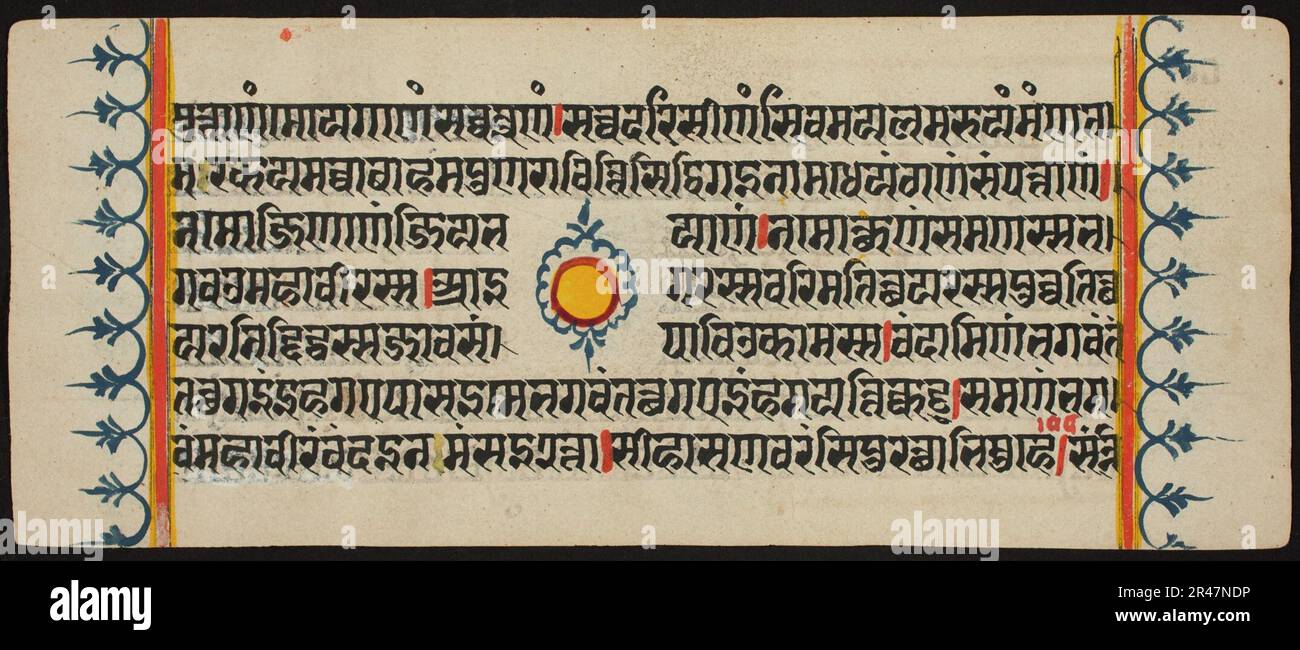 मुत्ताणं।मोयगाणं सव्वन्नूणं।सव्वदरिसीणं सिवमयलमरुयमणंत।
मकयमव्वाबाहमपुणरावित्तिसिद्धिगइनामधेयं ठाणं संपत्ताणं।
नमो जिणाणं जियभ याणं।नमोत्थुणं समणस्स भ।
गवउ महावीरस्स।आइ गरस्स चरिमतित्थयरस्स पुव्वतित्थ
यरनिद्दिट्ठस्स जाव सं। पाविउकामस्स।वंदामि णं भगवंतं
तत्थगइं इहगए पासइ मे भगवं तत्थगए इहगयं ति कट्टु।समणं भग।
वं महावीरं वंदइ नमंसइ २ त्ता।सीहासणवरंसि पुरत्थाभिमुहे।सन्नि
alamy
Image ID: 2R47NDP
www.alamy.com